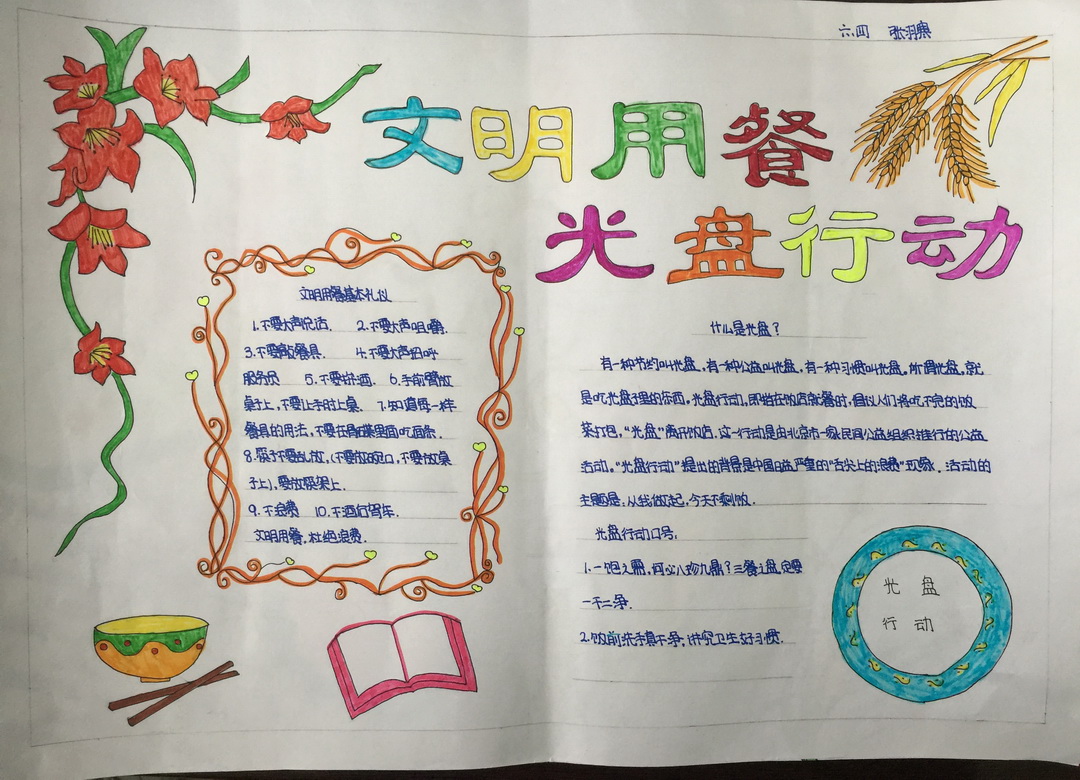 六.四 张羽
文明用餐
光盘行动
文明用餐基本礼仪
1.不要大声说话. 2.不要大声咀嚼.
3.不要敲餐具. 4.不要大声招呼
服务员 5.不要拼酒. 6.手前臂放
桌子上,不要让手肘上桌. 7.知道每一样
餐具的用法,不要在骨碟里面吃面条.
8.筷子不要乱放,(不要放碗口,不要放桌
子上),要放筷架上.
9.不浪费 10.不酒后驾车.
文明用餐.杜绝浪费.
什么是光盘?
有一种节约叫光盘,有一种公益叫光盘,有一种习惯叫光盘。所谓光盘,就
是吃光盘子里的东西。光盘行动,即指在饭店就餐时,倡议人们将吃不完的饭
菜打包,“光盘”离开饭店,这一行动是由北京市一家民间公益组织推行的公益
活动。“光盘行动”提出的背景是中国日益严重的“舌尖上的浪费”现象. 活动的
主题是:从我做起,今天不剩饭.
光盘行动口号:
1.一饱之需,何必八珍九鼎?三餐之盘定要
一干二净.
2.饭前洗手真干净,讲究卫生好习惯.
光盘
行动